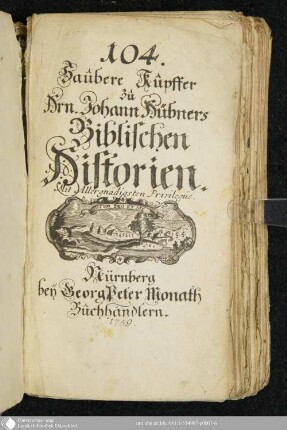 104.
Saubere Kupffer
zu
Hrn. Johann Hübners
Biblischen
Historien.
Mit Allergnädigsten Privilegio.
Nürnberg
bey Georg Peter Monath
Buchhändlern.
1759